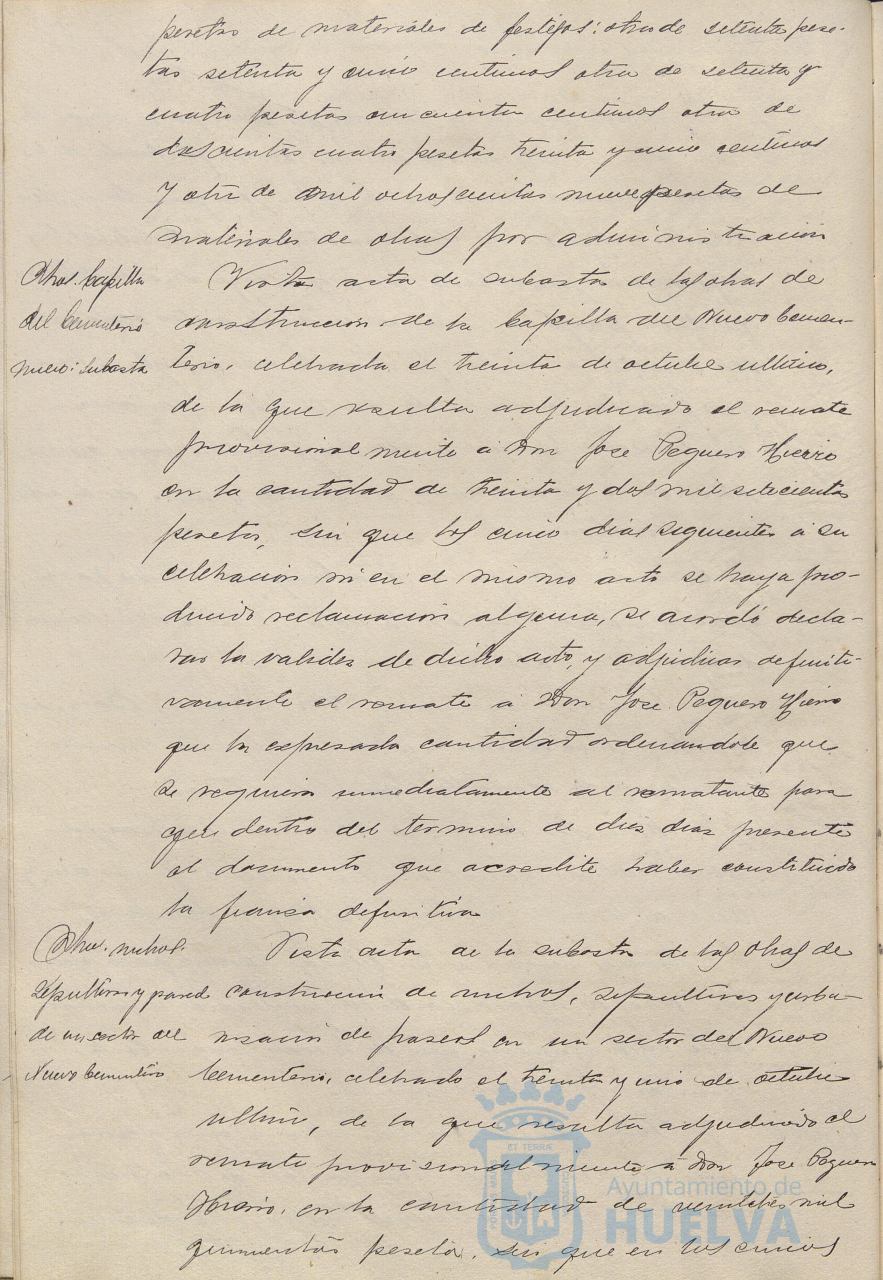 pesetas de materiales de festejos: otra de setenta pese-
tas setenta y cinco centimos otra de setenta y
cuatro pesetas cincuenta centimos otra de
doscientas cuatro pesetas treinta y cinco centimos
y otra de mil ochocientas nueve pesetas de
materiales de obras por administración
Obras. Capilla
del Cementerio
nuevo: Subasta
Vista acta de subasta de las obras de
construccion de la Capilla del Nuevo Cemen-
terio, celebrada el treinta de octubre ultimo,
de la que resulta adjudicado el remate
provisionalmente a Don Jose Peguero Hierro
en la cantidad de treinta y dos mil setecientas
pesetas, sin que los cinco dias siguientes a su
celebracion ni en el mismo acto se haya pro-
ducido reclamacion alguna, se acordó decla-
rar la validez de dicho acto, y adjudicar definiti-
vamente el remate a Don Jose Peguero Hierro
que la expresada cantidad ordenandole que
se requiera inmediatamente al rematante para
que dentro del termino de diez dias presente
el documento que acredite haber constituido
la fianza definitiva
Obras. nichos.
sepulturas y pared
de un sector del
Nuevo Cementerio
Vista acta de la subasta de las obras de
construccion de nichos, sepulturas y urba-
nizacion de paseos en un sector del Nuevo
Cementerio, celebrado el treinta y uno de octubre
ultimo, de la que resulta adjudicado el
remate provisionalmente a Don Jose Peguero
Hierro, en la cantidad de veintitres mil
quinientas pesetas, sin que en los cinco
Ayuntamiento de
HUELVA